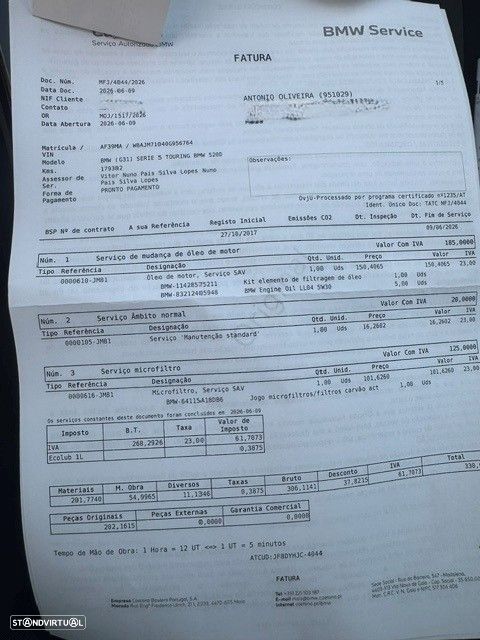 Serviço Autorizado BMW
BMW Service
FATURA
Doc. Núm. MFJ/4044/2026
1/5
Data Doc. 2026-06-09
NIF Cliente
ANTONIO OLIVEIRA (951029)
Contato
OR MOJ/1517/2026
Data Abertura 2026-06-09
Matrícula / VIN AF39MA / WBAJM71040G956764
Modelo BMW (G31) SERIE 5 TOURING BMW 520D
Observações:
Kms. 179382
Assessor de Serviço Vitor Nuno Pais Silva Lopes Nuno Pais Silva Lopes
Forma de Pagamento PRONTO PAGAMENTO
Ovju-Processado por programa certificado nº1235/AT
Ident. Único Doc: TATC MFJ/4044
BSP Nº de contrato A sua Referência Registo Inicial Emissões CO2 Dt. Inspeção Dt. Fim de Serviço
27/10/2017 09/06/2026
Núm. 1 Serviço de mudança de óleo de motor Valor Com IVA 185,0000
Tipo Referência Designação Qtd. Unid. Preço Valor IVA
0000610-JMB1 Óleo de motor, Serviço SAV 1,00 Uds 150,4065 150,4065 23,00
BMW-11428575211 Kit elemento de filtragem de óleo 1,00 Uds
BMW-83212405948 BMW Engine Oil LL04 5W30 5,00 Uds
Núm. 2 Serviço Âmbito normal Valor Com IVA 20,0000
Tipo Referência Designação Qtd. Unid. Preço Valor IVA
0000105-JMB1 Serviço 'Manutenção standard' 1,00 Uds 16,2602 16,2602 23,00
Núm. 3 Serviço microfiltro Valor Com IVA 125,0000
Tipo Referência Designação Qtd. Unid. Preço Valor IVA
0000616-JMB1 Microfiltro, Serviço SAV 1,00 Uds 101,6260 101,6260 23,00
BMW-64115A1BDB6 Jogo microfiltros/filtros carvão act 1,00 Uds
Os serviços constantes deste documento foram concluídos em 2026-06-09
Imposto B.T. Taxa Valor de Imposto
IVA 268,2926 23,00 61,7073
Ecolub 1L 0,3875
Materiais M. Obra Diversos Taxas Bruto Desconto IVA Total
201,7740 54,9965 11,1346 0,3875 306,1141 37,8215 61,7073
Peças Originais Peças Externas Garantia Comercial
202,1615 0,0000 0,0000
Tempo de Mão de Obra: 1 Hora = 12 UT <=> 1 UT = 5 minutos
ATCUD:JF8DYHJC-4044
FATURA
STANDVIRTUAL